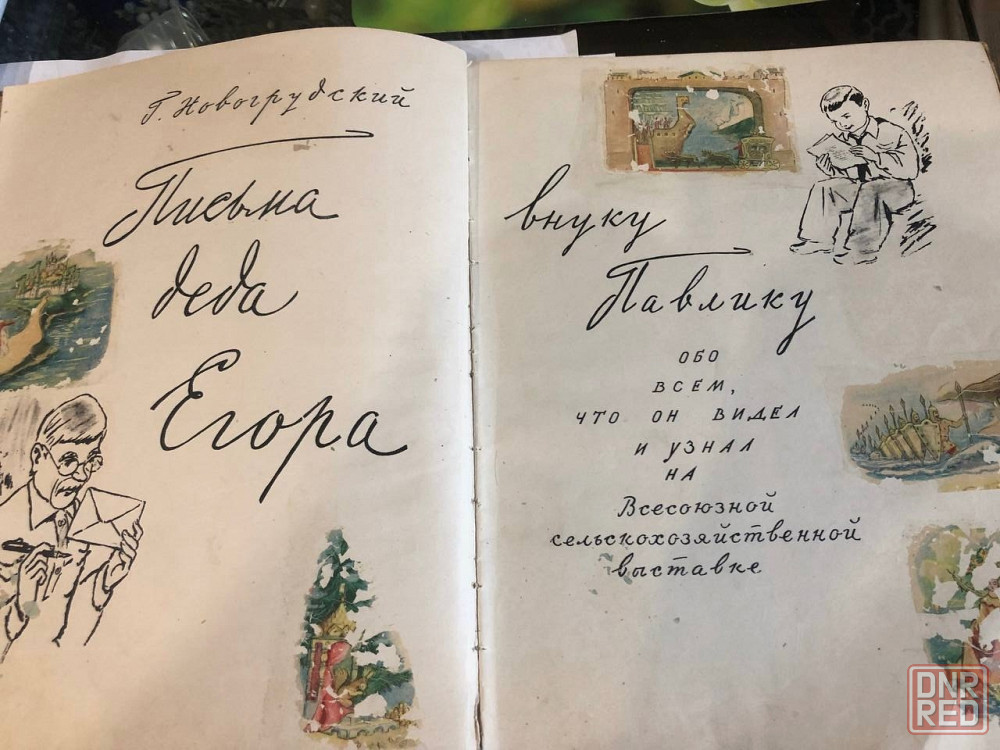 Г. Новогрудский
Письма
деда
Егора
внуку
Павлику
ОБО
ВСЕМ,
ЧТО ОН ВИДЕЛ
И УЗНАЛ
НА
Всесоюзной
сельскохозяйственной
выставке
DNR
RED